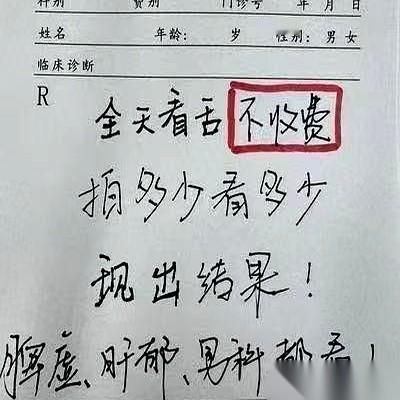 科别 费别 门诊号 年 月 日
姓名 年龄: 岁 性别: 男 女
临床诊断
R
全天看舌不收费
拍多少看多少
现出结果!
脾虚、肝郁、男科都看!